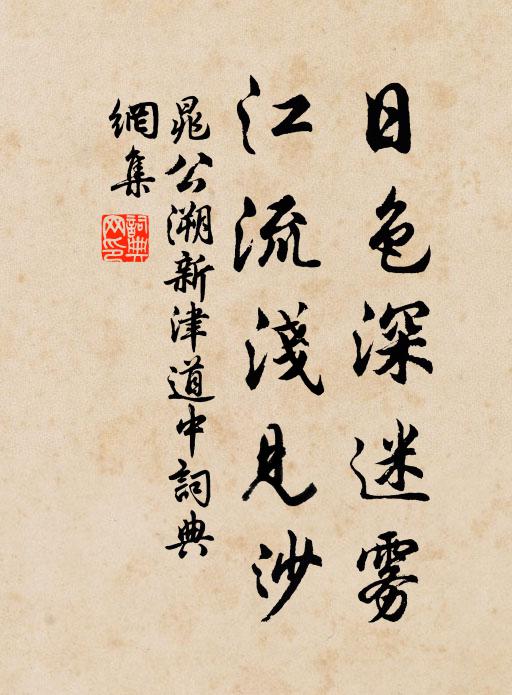 日色深迷雾
江流淺見沙
晁公溯新津道中詞典
網集
詞典
网印